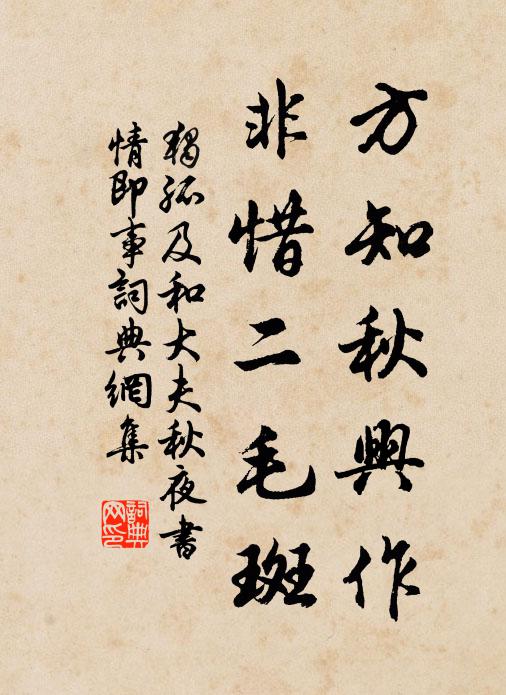 方知秋興作
非惜二毛斑
獨孤及和大夫秋夜書
情即事詞典網集
詞典
网印